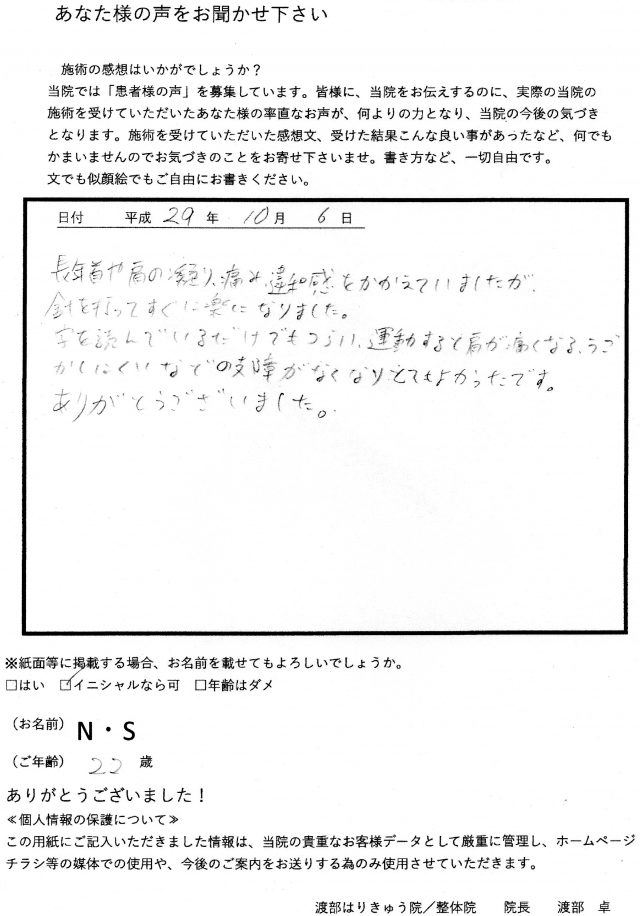 あなた様の声をお聞かせ下さい
施術の感想はいかがでしょうか？
当院では「患者様の声」を募集しています。皆様に、当院をお伝えするのに、実際の当院の
施術を受けていただいたあなた様の率直なお声が、何よりの力となり、当院の今後の気づき
となります。施術を受けていただいた感想文、受けた結果こんな良い事があったなど、何でも
かまいませんのでお気づきのことをお寄せ下さいませ。書き方など、一切自由です。
文でも似顔絵でもご自由にお書きください。
日付　平成 29 年 10 月 6 日
長年首や肩の凝り、痛み、違和感をかかえていましたが、
針を打ってすぐに楽になりました。
字を読んでいるだけでもつらい、運動すると肩が痛くなる、うご
かしにくいなどの支障がなくなりとてもよかったです。
ありがとうございました。
※紙面等に掲載する場合、お名前を載せてもよろしいでしょうか。
□はい ☑イニシャルなら可 □年齢はダメ
（お名前） N・S
（ご年齢） 22 歳
ありがとうございました！
≪個人情報の保護について≫
この用紙にご記入いただきました情報は、当院の貴重なお客様データとして厳重に管理し、ホームページ
チラシ等の媒体での使用や、今後のご案内をお送りする為のみ使用させていただきます。
渡部はりきゅう院／整体院　院長　渡部　卓